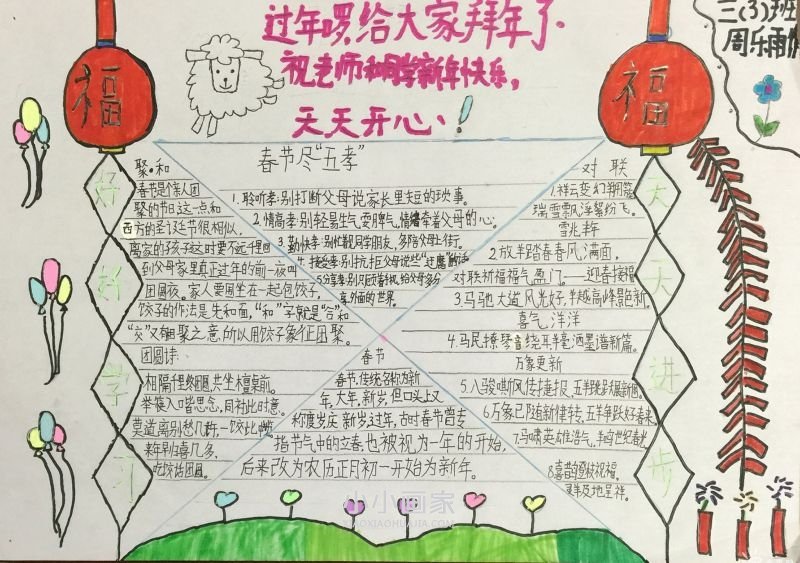 过年啰,给大家拜年了.
祝老师和同学新年快乐,
天天开心!
三(3)班
周乐雨
福
福
好好学习
天天进步
聚·和
春节是个亲人团
聚的节日,这一点和
西方的圣诞节很相似,
离家的孩子这时要不远千里回
到父母家里.真正过年的前一夜叫
团圆夜,家人要围坐在一起包饺子,
饺子的作法是先和面,“和”字就是“合”和
“交”又有相聚之意,所以用饺子象征团聚.
团圆诗
相隔千里终团圆,共坐檀桌前.
举筷入口皆思念,
莫道离别愁几许,一饺比
来年别喜几多,
吃饺话团圆.
春节尽“五孝”
1.聆听孝:别打断父母说家长里短的琐事.
2.情商孝:别轻易生气耍脾气,情绪牵着父母的心;
3.勤快孝:别忙着见同学朋友,多陪父母上街.
4.接受孝:别抗拒父母说些“过魔”的话
5.分享孝:别只顾着看手机,给父母多分
享外面的世界.
春节
春节,传统名称为新
年,大年,新岁,但口头上又
称度岁庆新岁,过年,古时春节曾专
指节气中的立春,也被视为一年的开始,
后来改为农历正月初一开始为新年.
对联
1.祥云变幻
瑞雪飘浮絮纷飞.
雪兆丰年
2.放羊踏春春风满面,
对联祈福福气盈门.——迎春接福
3.马驰大道风光好,羊越高峰景色新.
喜气洋洋
4.马民撩琴音绕耳,羊毫洒墨谱新篇.
万象更新
5.八骏嘶风传捷报,五羊跳
6.万象已随新律转,五羊争跃好春来.
7.马啸英雄浩气,羊鸣世纪春光
8.喜
小小画家
XIAOXIAOHUAJIA.COM